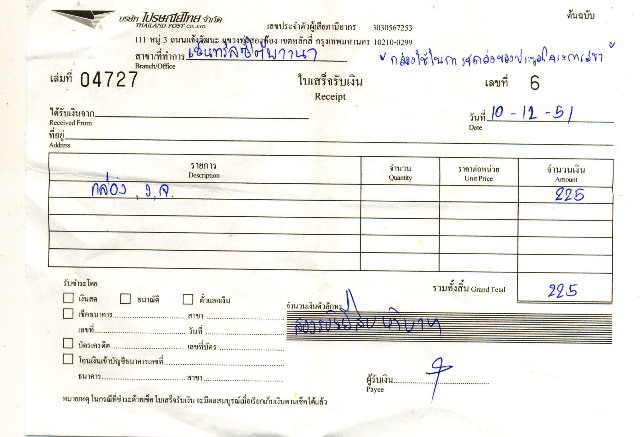 ต้นฉบับ
บริษัท ไปรษณีย์ไทย จำกัด
THAILAND POST co.,Ltd.
เลขประจำตัวผู้เสียภาษีอากร 3030567253
111 หมู่ 3 ถนนแจ้งวัฒนะ แขวงทุ่งสองห้อง เขตหลักสี่ กรุงเทพมหานคร 10210-0299
สาขา/ที่ทำการ เซ็นทรัลซิตี้บางนา
Branch/Office
เล่มที่ 04727
ใบเสร็จรับเงิน
Receipt
เลขที่ 6
ได้รับเงินจาก
Received From
วันที่ 10-12-51
Date
ที่อยู่
Address
รายการ จำนวน ราคาต่อหน่วย จำนวนเงิน
Description Quantity Unit Price Amount
กล่อง ง.จ. 225
รวมทั้งสิ้น Grand Total 225
รับชำระโดย
เงินสด ธนาณัติ ตั๋วแลกเงิน
จำนวนเงินตัวอักษร สองร้อยยี่สิบห้าบาท
เช็คธนาคาร สาขา
เลขที่ วันที่
บัตรเครดิต เลขที่บัตร
โอนเงินเข้าบัญชีธนาคารเลขที่
ธนาคาร สาขา
ผู้รับเงิน
Payee
หมายเหตุ ในกรณีที่ชำระด้วยเช็ค ใบเสร็จรับเงิน จะมีผลสมบูรณ์เมื่อเรียกเก็บเงินตามเช็คได้แล้ว